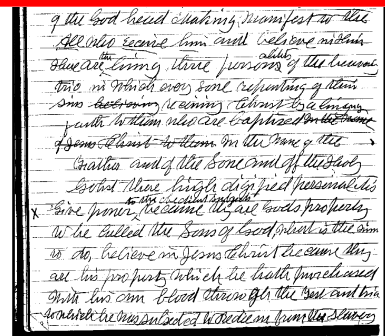 of the God head making manifest to the
all who receive him and believe in him
have are the living three persons of the heavenly
trio, in which every one repenting of their
sins believing receiving Christ by a living
faith to them who are baptized in the name
of Jesus Christ to them in the name of the
Father and of the Sone and off the Holy
Gohst these high dignified personalities
to the obedient subjects
X give power, because they are Gods property
to be called the Sons of God what is the
to do, believe in Jesus Christ because they
are his property which he hath purchased
with his own blood through the and
which he was subjected to redeem from the slavery